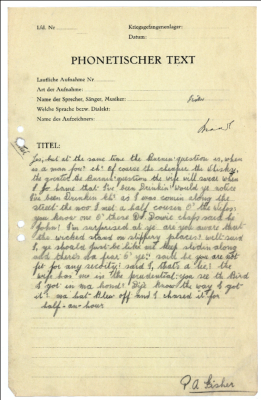 Lfd. Nr
Kriegsgefangenenlager:
Datum:
PHONETISCHER TEXT
Lautliche Aufnahme Nr
Art der Aufnahme:
Name des Sprecher, Sänger, Musiker:
Welche Sprache bezw. Dialekt:
Name des Aufzeichners:
TITEL:
Yes, but at the same time the Burnin' question is, when
is a man fou? eh! Of course the cheaper the whisky,
the greater the Burnin' question the wife will swear when
I go hame that I've been Drinkin' would ye notice
I've been Drinkin eh! as I was comin along the
street the noo I met a half dozen o' the
you know one o' there Dr Dowie chaps said he
John! I'm surprised at ye are you aware that
the wicked stand on slippery places! well said
I, ye should just be label wet keep
add there's for said he you are not
fit for any society! said I, that's a lee! the
wife has me in the prudential; you see the Bird
I got in ma hond! Dye know the way I got
it! ma hat blew off and I chased it for
half-an-hour
P A Fisher